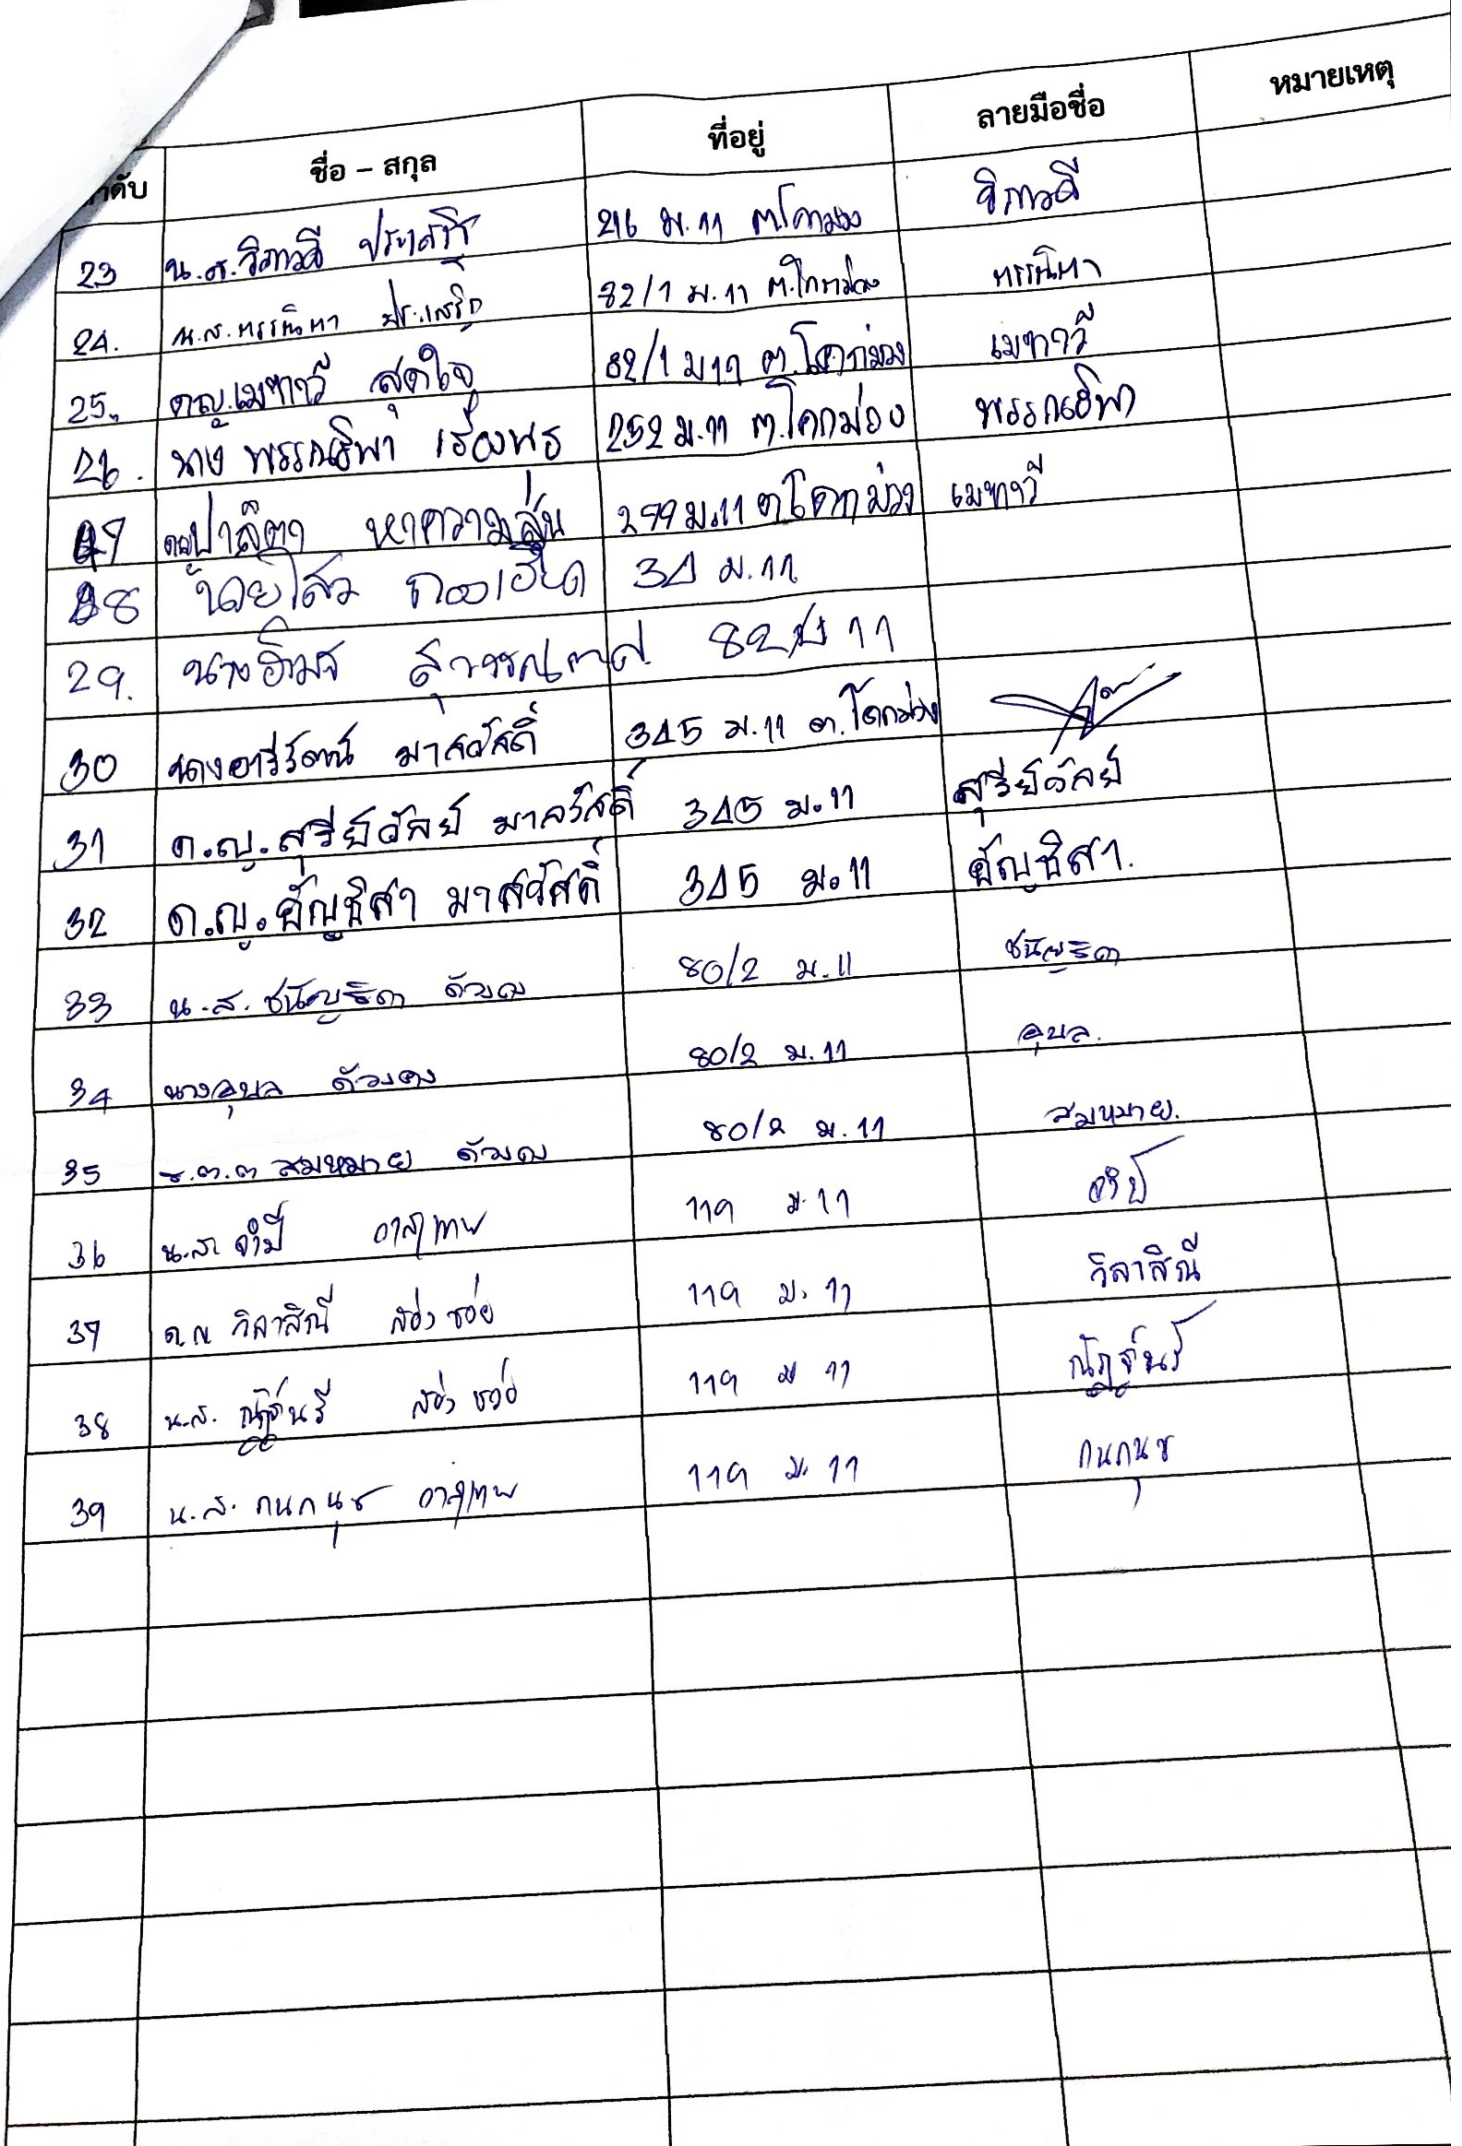 ลำดับ ชื่อ – สกุล ที่อยู่ ลายมือชื่อ หมายเหตุ
23 น.ส.วิภาวดี ประเสริฐ 216 ม.11 ต.โคกม่วง วิภาวดี
24. น.ส. ประเสริฐ 82/1 ม.11 ต.โคกม่วง
25. ดญ.เมฑาวี สุดใจ 82/1 ม 11 ต.โคกม่วง เมฑาวี
26. นาง พรรณธิพา เรืองพธ 252 ม.11 ต.โคกม่วง พรรณธิพา
27 ดญปาลิตา หาความสุ่น 299 ม.11 ต โคกม่วง เมฑาวี
28 นายโสว 34 ม.11
29. นาง 82 ม 11
30 นางอารีรัตน์ มาสวัสดิ์ 345 ม.11 ต.โคกม่วง
31 ด.ญ.สุรีย์วัลย์ มาสวัสดิ์ 345 ม.11 สุรีย์วัลย์
32 ด.ญ.ธัญชิสา มาสวัสดิ์ 345 ม.11 ธัญชิสา.
33 น.ส. ชนัญธิดา ด้วง 80/2 ม.11 ชนัญธิดา
34 นางอุบล ด้วง 80/2 ม.11 อุบล.
35 ร.ต.ต สมหมาย ด้วง 80/2 ม.11 สมหมาย.
36 น.ส. จำปี อาสุเทพ 119 ม.11 จำปี
37 ด.ญ วิลาสิณี ส่องช่วย 119 ม.11 วิลาสิณี
38 น.ส. ณัฏฐ์นรี ส่องช่วย 119 ม 11 ณัฏฐ์นรี
39 น.ส. กนกนุช อาสุเทพ 119 ม.11 กนกนุช